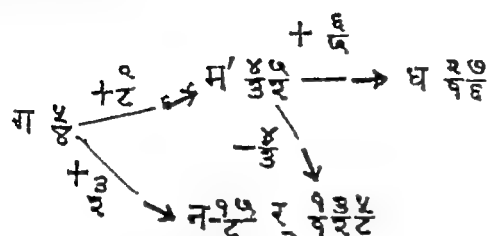 + ६/५
+ ९/८ म' ४५/३२ ध २७/१६
ग ५/४
- ४/३
+ ३/२
न १५/८ र १३५/१२८